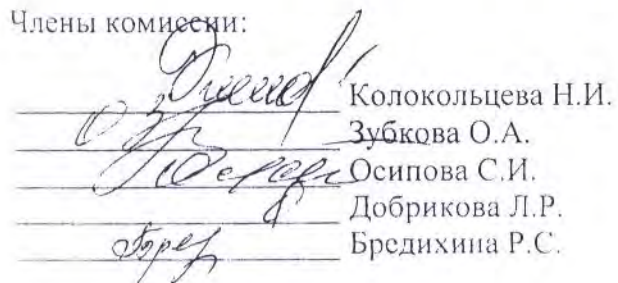 Члены комиссии:
Колокольцева Н.И.
Зубкова О.А.
Осипова С.И.
Добрикова Л.Р.
Бредихина Р.С.